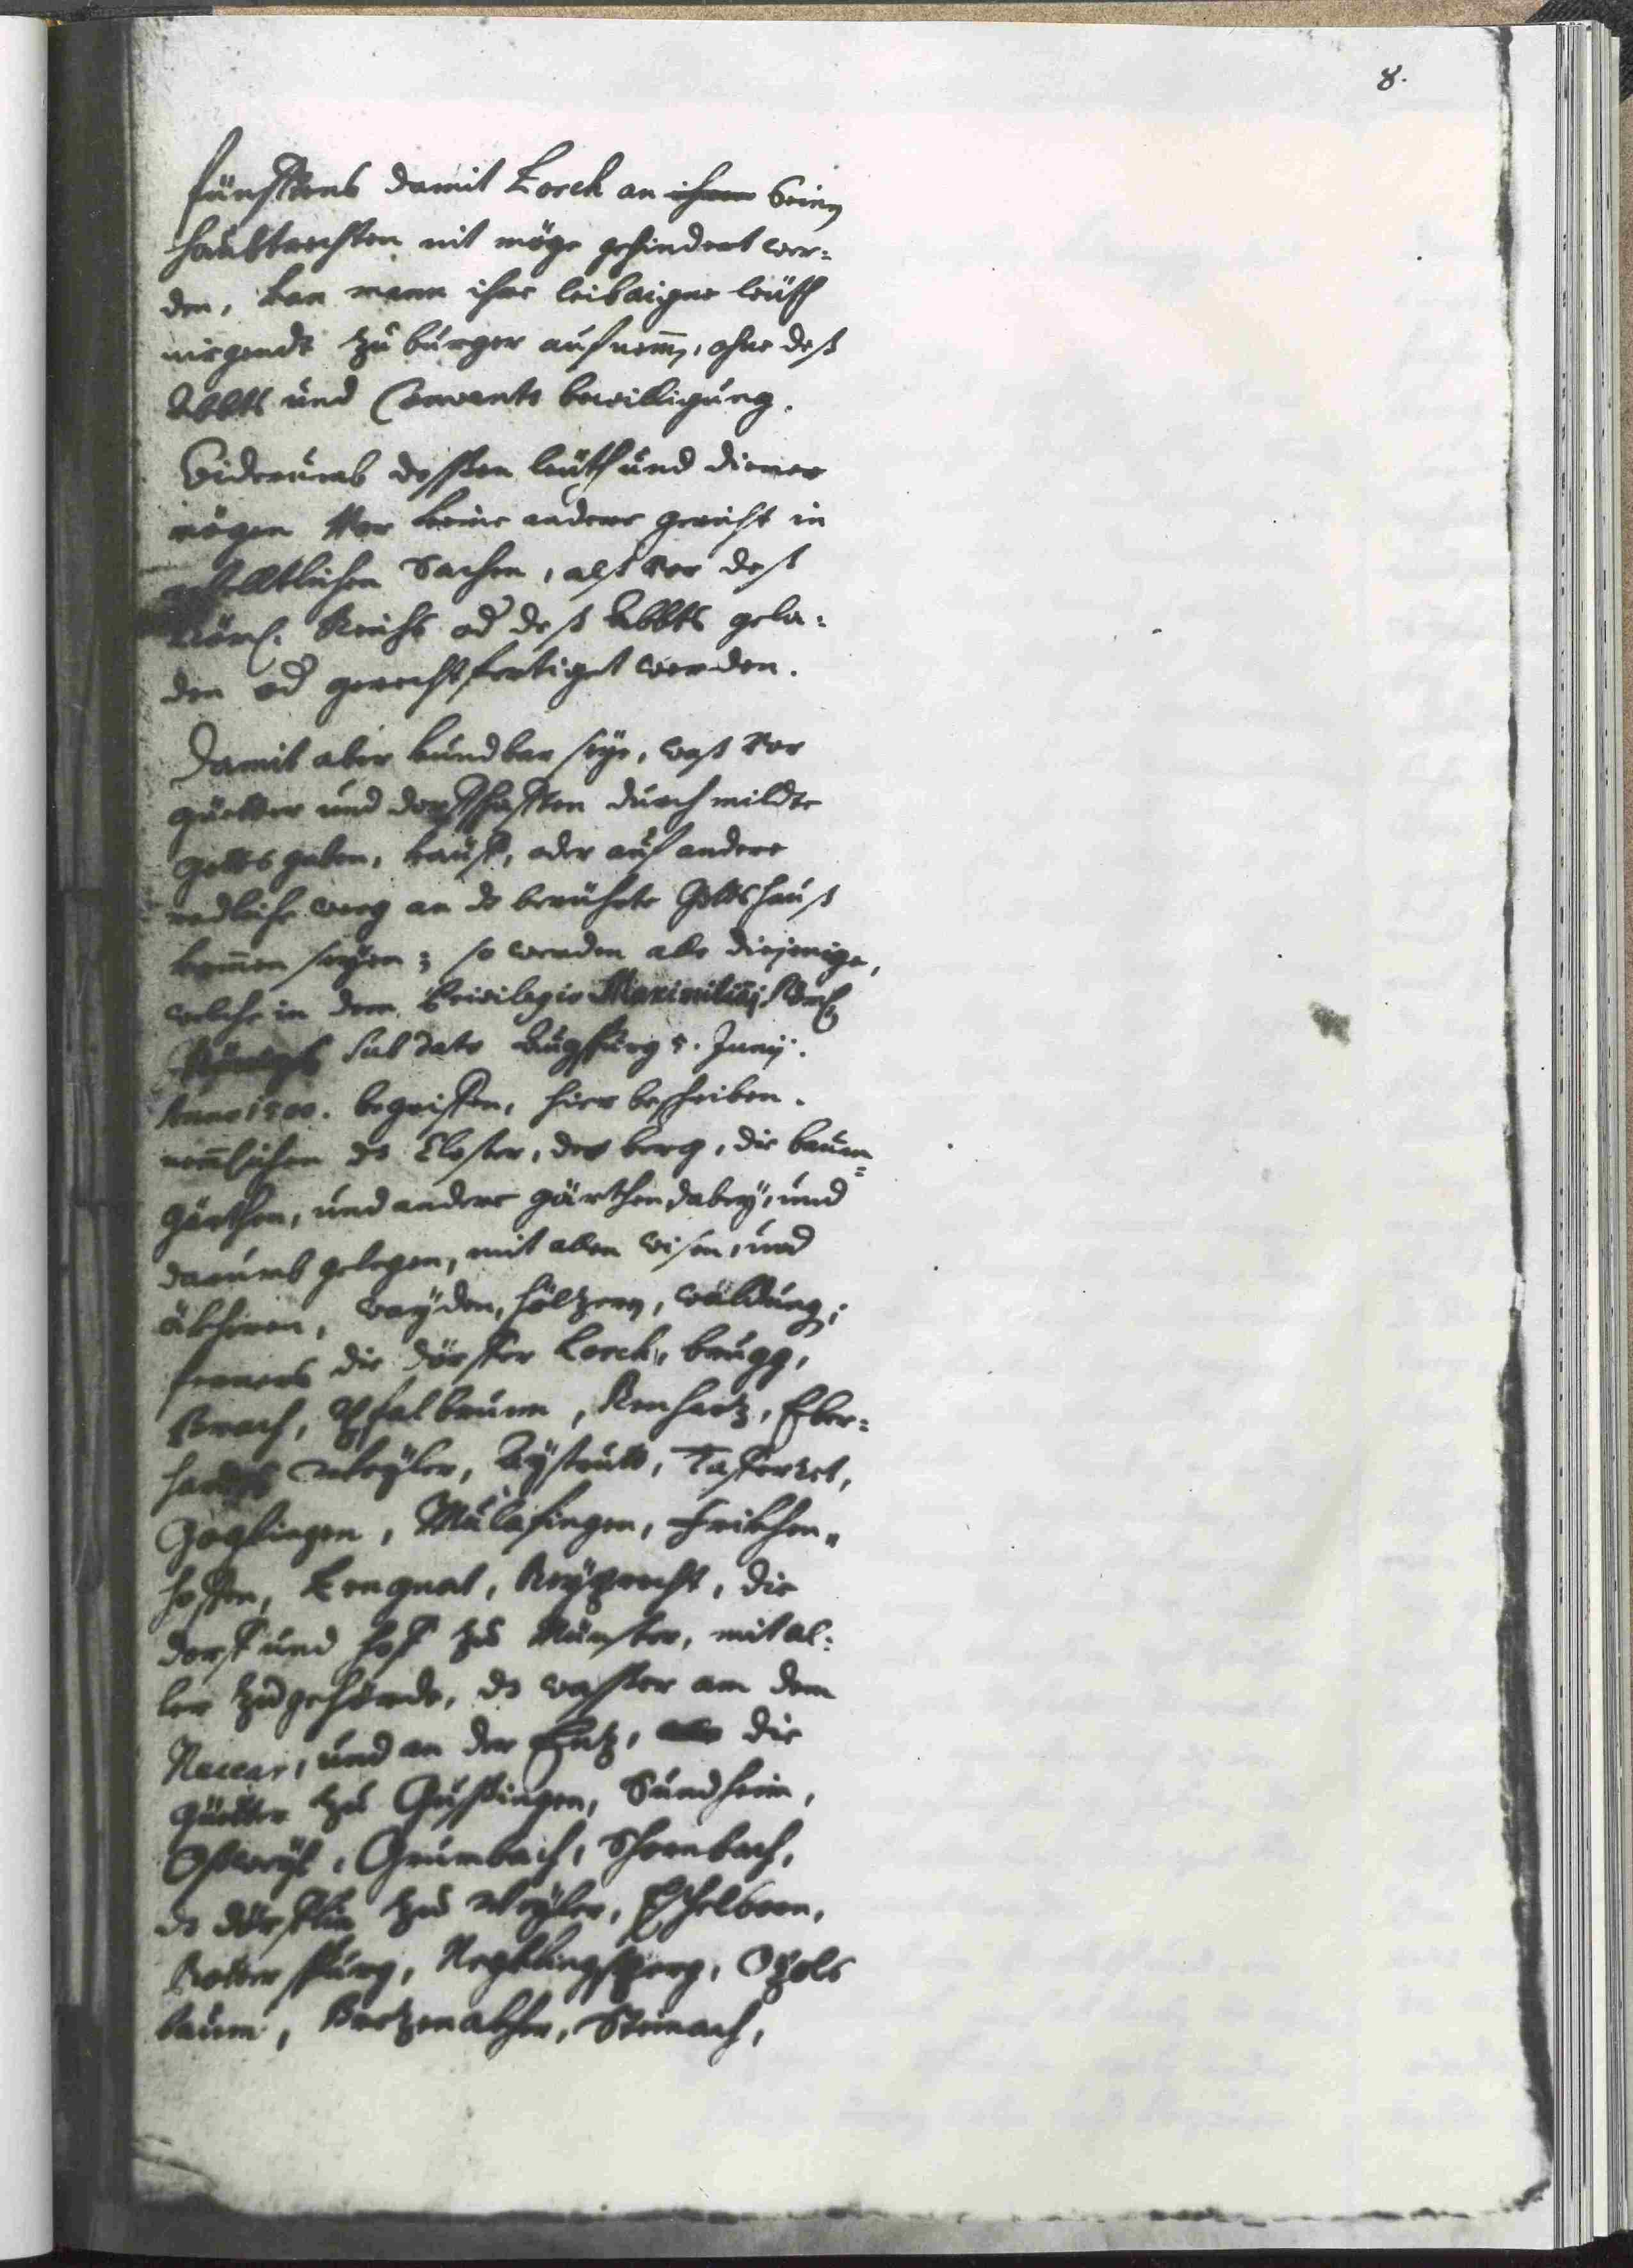 8.
fünfftens damit Lorch an ihren Seinen
haubtrechten nit möge gehindert wer=
den, kan mann ihre leibaigne leüth
nirgendt zu burger aufnemen, ohne deß
Abbts und Convents bewilligung.
Widerumb dessen leüth und diener
mögen vor keine andere gericht in
weltlichen Sachen, alß vor deß
Röm. Reichs od deß Abbts gela=
den od gerechtfertiget werden.
Damit aber kundbar seye, waß vor
güetter und dorffschafften durch milde
Gottsgaben, kauff, oder auf andere
redliche weeg an ds berührte Gottshauß
kommen seyen; so werden alle diejenige,
welche in dem Privilegio Maximiliani Röm.
Königs sub dato Augspurg 5. Junij.
Anno 1500. begriffen, hier beschriben.
nemlichen ds Closter, der berg, die baum=
gärthen, und andere gärthen dabey, und
darumb gelegen, mit allen wisen, und
äkheren, wayden, höltzern, wäldung;
ferners die dörffer Lorch, brugg,
Brach, Pfalbrunn, Renhartz, Eber=
hardts Weyler, Aystrutt, Tafferret,
Gögglingen, Mulafingen, Frikhen=
hoffen, Lengnat, Reyprecht, die
dorff und hoff zu Münster, mit al=
ler zugehörde, ds wasser an dem
Neccar, und an der Entz, die
Güetter zu Gussingen, Sundheim,
Osweyl, Grumbach, Schornbach,
ds dörfflin zu Weyler, Eschelbron,
Rotterspurg, Negklingsperg, Otzels
baum, Bretzenakher, Steinach,